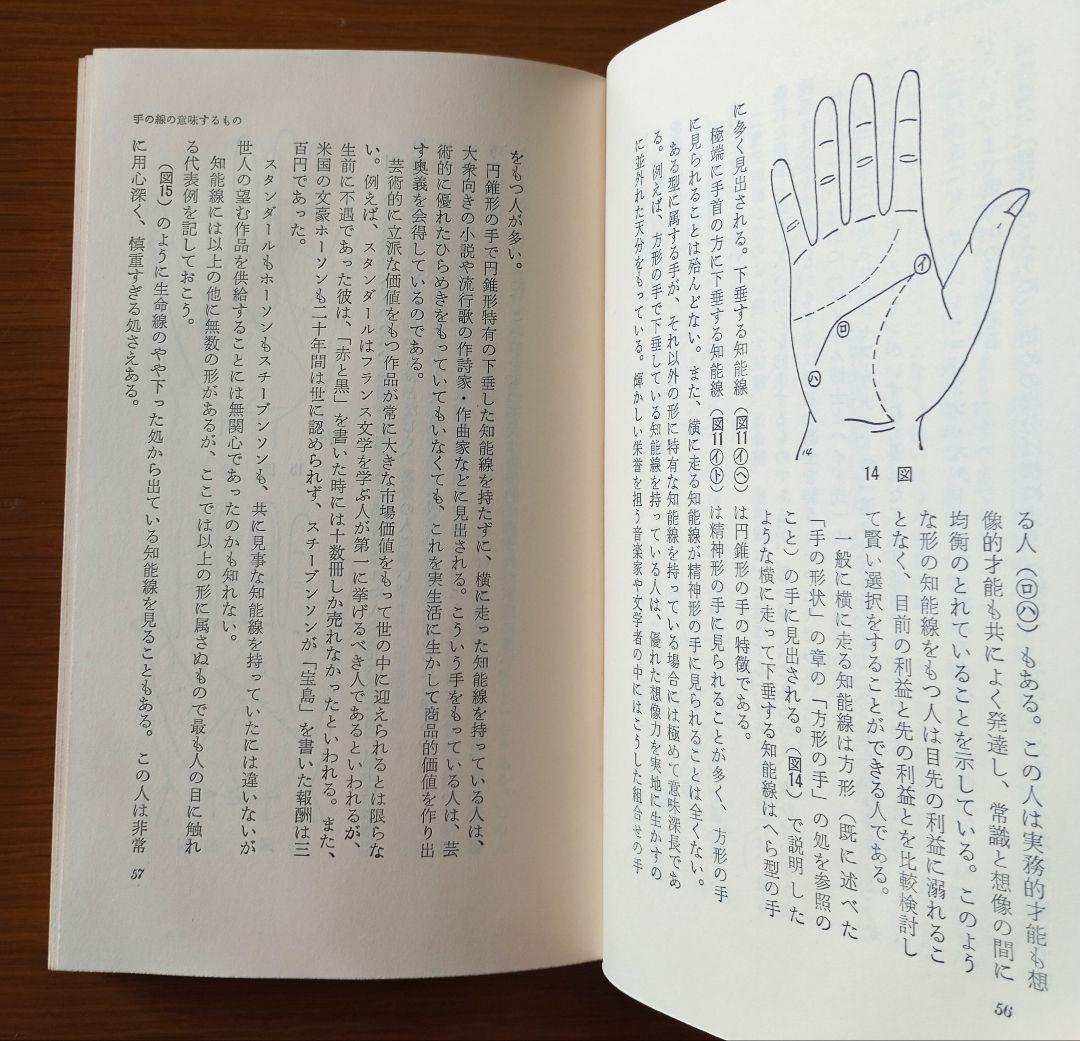 イ
ロ
ハ
14
14 図
る人（㋺㋩）もある。この人は実務的才能も想
像的才能も共によく発達し、常識と想像の間に
均衡のとれていることを示している。このよう
な形の知能線をもつ人は目先の利益に溺れるこ
となく、目前の利益と先の利益とを比較検討し
て賢い選択をすることができる人である。
一般に横に走る知能線は方形（既に述べた
「手の形状」の章の「方形の手」の処を参照の
こと）の手に見出される。（図14）で説明した
ような横に走って下垂する知能線はへら型の手
に多く見出される。下垂する知能線（図11㋑㋬）は円錐形の手の特徴である。
極端に手首の方に下垂する知能線（図11㋑㋣）は精神形の手に見られることが多く、方形の手
に見られることは殆んどない。また、横に走る知能線が精神形の手に見られることは全くない。
ある型に属する手が、それ以外の形に特有な知能線を持っている場合には極めて意味深長であ
る。例えば、方形の手で下垂している知能線を持っている人は、優れた想像力を実地に生かすの
に並外れた天分をもっている。輝かしい栄誉を担う音楽家や文学者の中にはこうした組合せの手
56
手の線の意味するもの
をもつ人が多い。
円錐形の手で円錐形特有の下垂した知能線を持たずに、横に走った知能線を持っている人は、
大衆向きの小説や流行歌の作詩家・作曲家などに見出される。こういう手をもっている人は、芸
術的に優れたひらめきをもっていてもいなくても、これを実生活に生かして商品的価値を作り出
す奥義を会得しているのである。
芸術的に立派な価値をもつ作品が常に大きな市場価値をもって世の中に迎えられるとは限らな
い。例えば、スタンダールはフランス文学を学ぶ人が第一に挙げるべき人であるといわれるが、
生前に不遇であった彼は、「赤と黒」を書いた時には十数冊しか売れなかったといわれる。また、
米国の文豪ホーソンも二十年間は世に認められず、スチーブンソンが「宝島」を書いた報酬は三
百円であった。
スタンダールもホーソンもスチーブンソンも、共に見事な知能線を持っていたには違いないが
世人の望む作品を供給することには無関心であったのかも知れない。
知能線には以上の他に無数の形があるが、ここでは以上の形に属さぬもので最も人の目に触れ
る代表例を記しておこう。
（図15）のように生命線のやや下った処から出ている知能線を見ることもある。この人は非常
に用心深く、慎重すぎる処さえある。
57